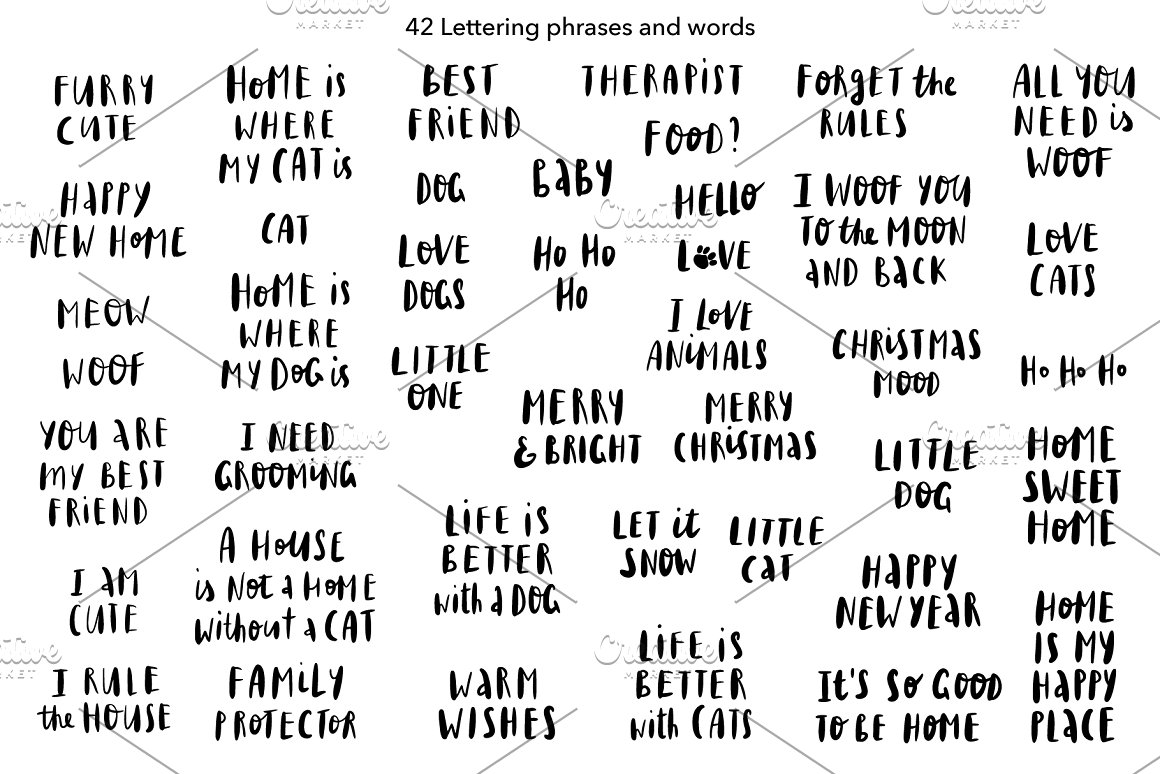 42 Lettering phrases and words
FURRY
CUTE
HAPPY
NEW HOME
MEOW
WOOF
YOU ARE
MY BEST
FRIEND
I AM
CUTE
I RULE
the HOUSE
HOME is
WHERE
MY CAT is
CAT
HOME is
WHERE
MY DOG is
I NEED
GROOMING
A HOUSE
is NOT a HOME
without a CAT
FAMILY
PROTECTOR
BEST
FRIEND
DOG
LOVE
DOGS
LITTLE
ONE
MERRY
& BRIGHT
LIFE is
BETTER
with a DOG
WARM
WISHES
THERAPIST
FOOD?
BABY
HELLO
HO HO
HO
LOVE
I LOVE
ANIMALS
MERRY
CHRISTMAS
LET it
SNOW
LITTLE
CAT
LIFE is
BETTER
with CATS
FORGET the
RULES
I WOOF YOU
TO the MOON
AND BACK
CHRISTMAS
MOOD
LITTLE
DOG
HAPPY
NEW YEAR
IT'S SO GOOD
TO BE HOME
ALL YOU
NEED is
WOOF
LOVE
CATS
HO HO HO
HOME
SWEET
HOME
HOME
IS MY
HAPPY
PLACE
Creative
MARKET
Creative
MARKET
Creative
MARKET
Creative
MARKET
Creative
MARKET
Creative
MARKET